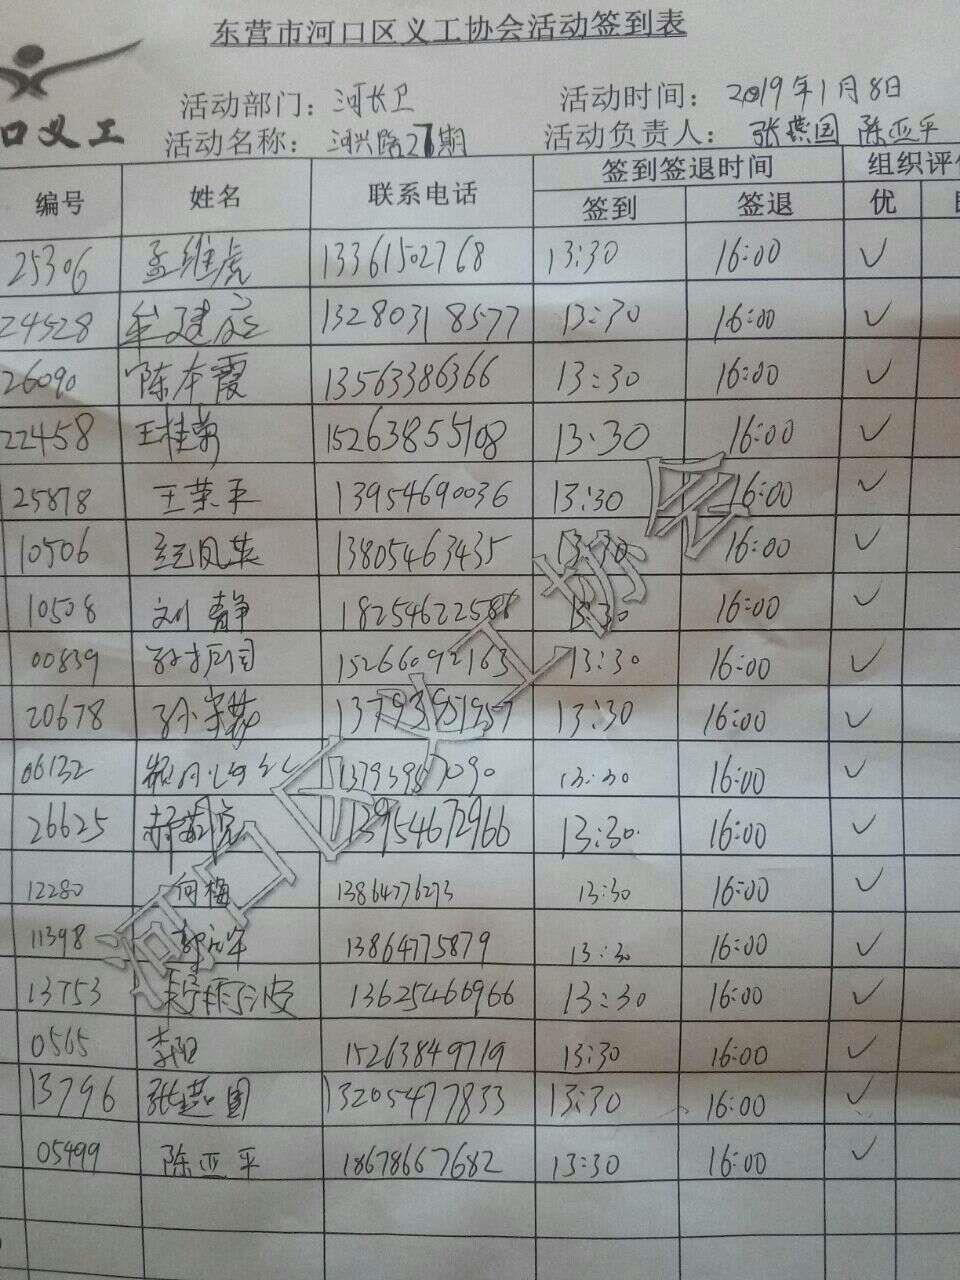 东营市河口区义工协会活动签到表
口义工
活动部门：河长卫 活动时间：2019年1月8日
活动名称：河兴路27期 活动负责人：张燕国 陈亚平
编号 姓名 联系电话 签到签退时间 组织评
签到 签退 优
25306 孟维虎 13361502768 13:30 16:00 ✓
24528 牟建 13280318577 13:30 16:00 ✓
26090 陈本霞 13563386366 13:30 16:00 ✓
22458 王桂菊 15263855108 13:30 16:00 ✓
25878 王荣平 13954690036 13:30 16:00 ✓
10506 凤英 13805463435 13:30 16:00 ✓
10508 刘静 18254622586 13:30 16:00 ✓
00839 孙 15266092163 13:30 16:00 ✓
20678 孙 13793951957 13:30 16:00 ✓
06132 13:30 16:00 ✓
26625 13954672966 13:30 16:00 ✓
12280 向梅 13864776273 13:30 16:00 ✓
11398 13864775879 13:30 16:00 ✓
13753 13625466966 13:30 16:00 ✓
0565 李阳 15263849719 13:30 16:00 ✓
13796 张燕国 13205477833 13:30 16:00 ✓
05499 陈亚平 18678667682 13:30 16:00 ✓
河口区义工协会